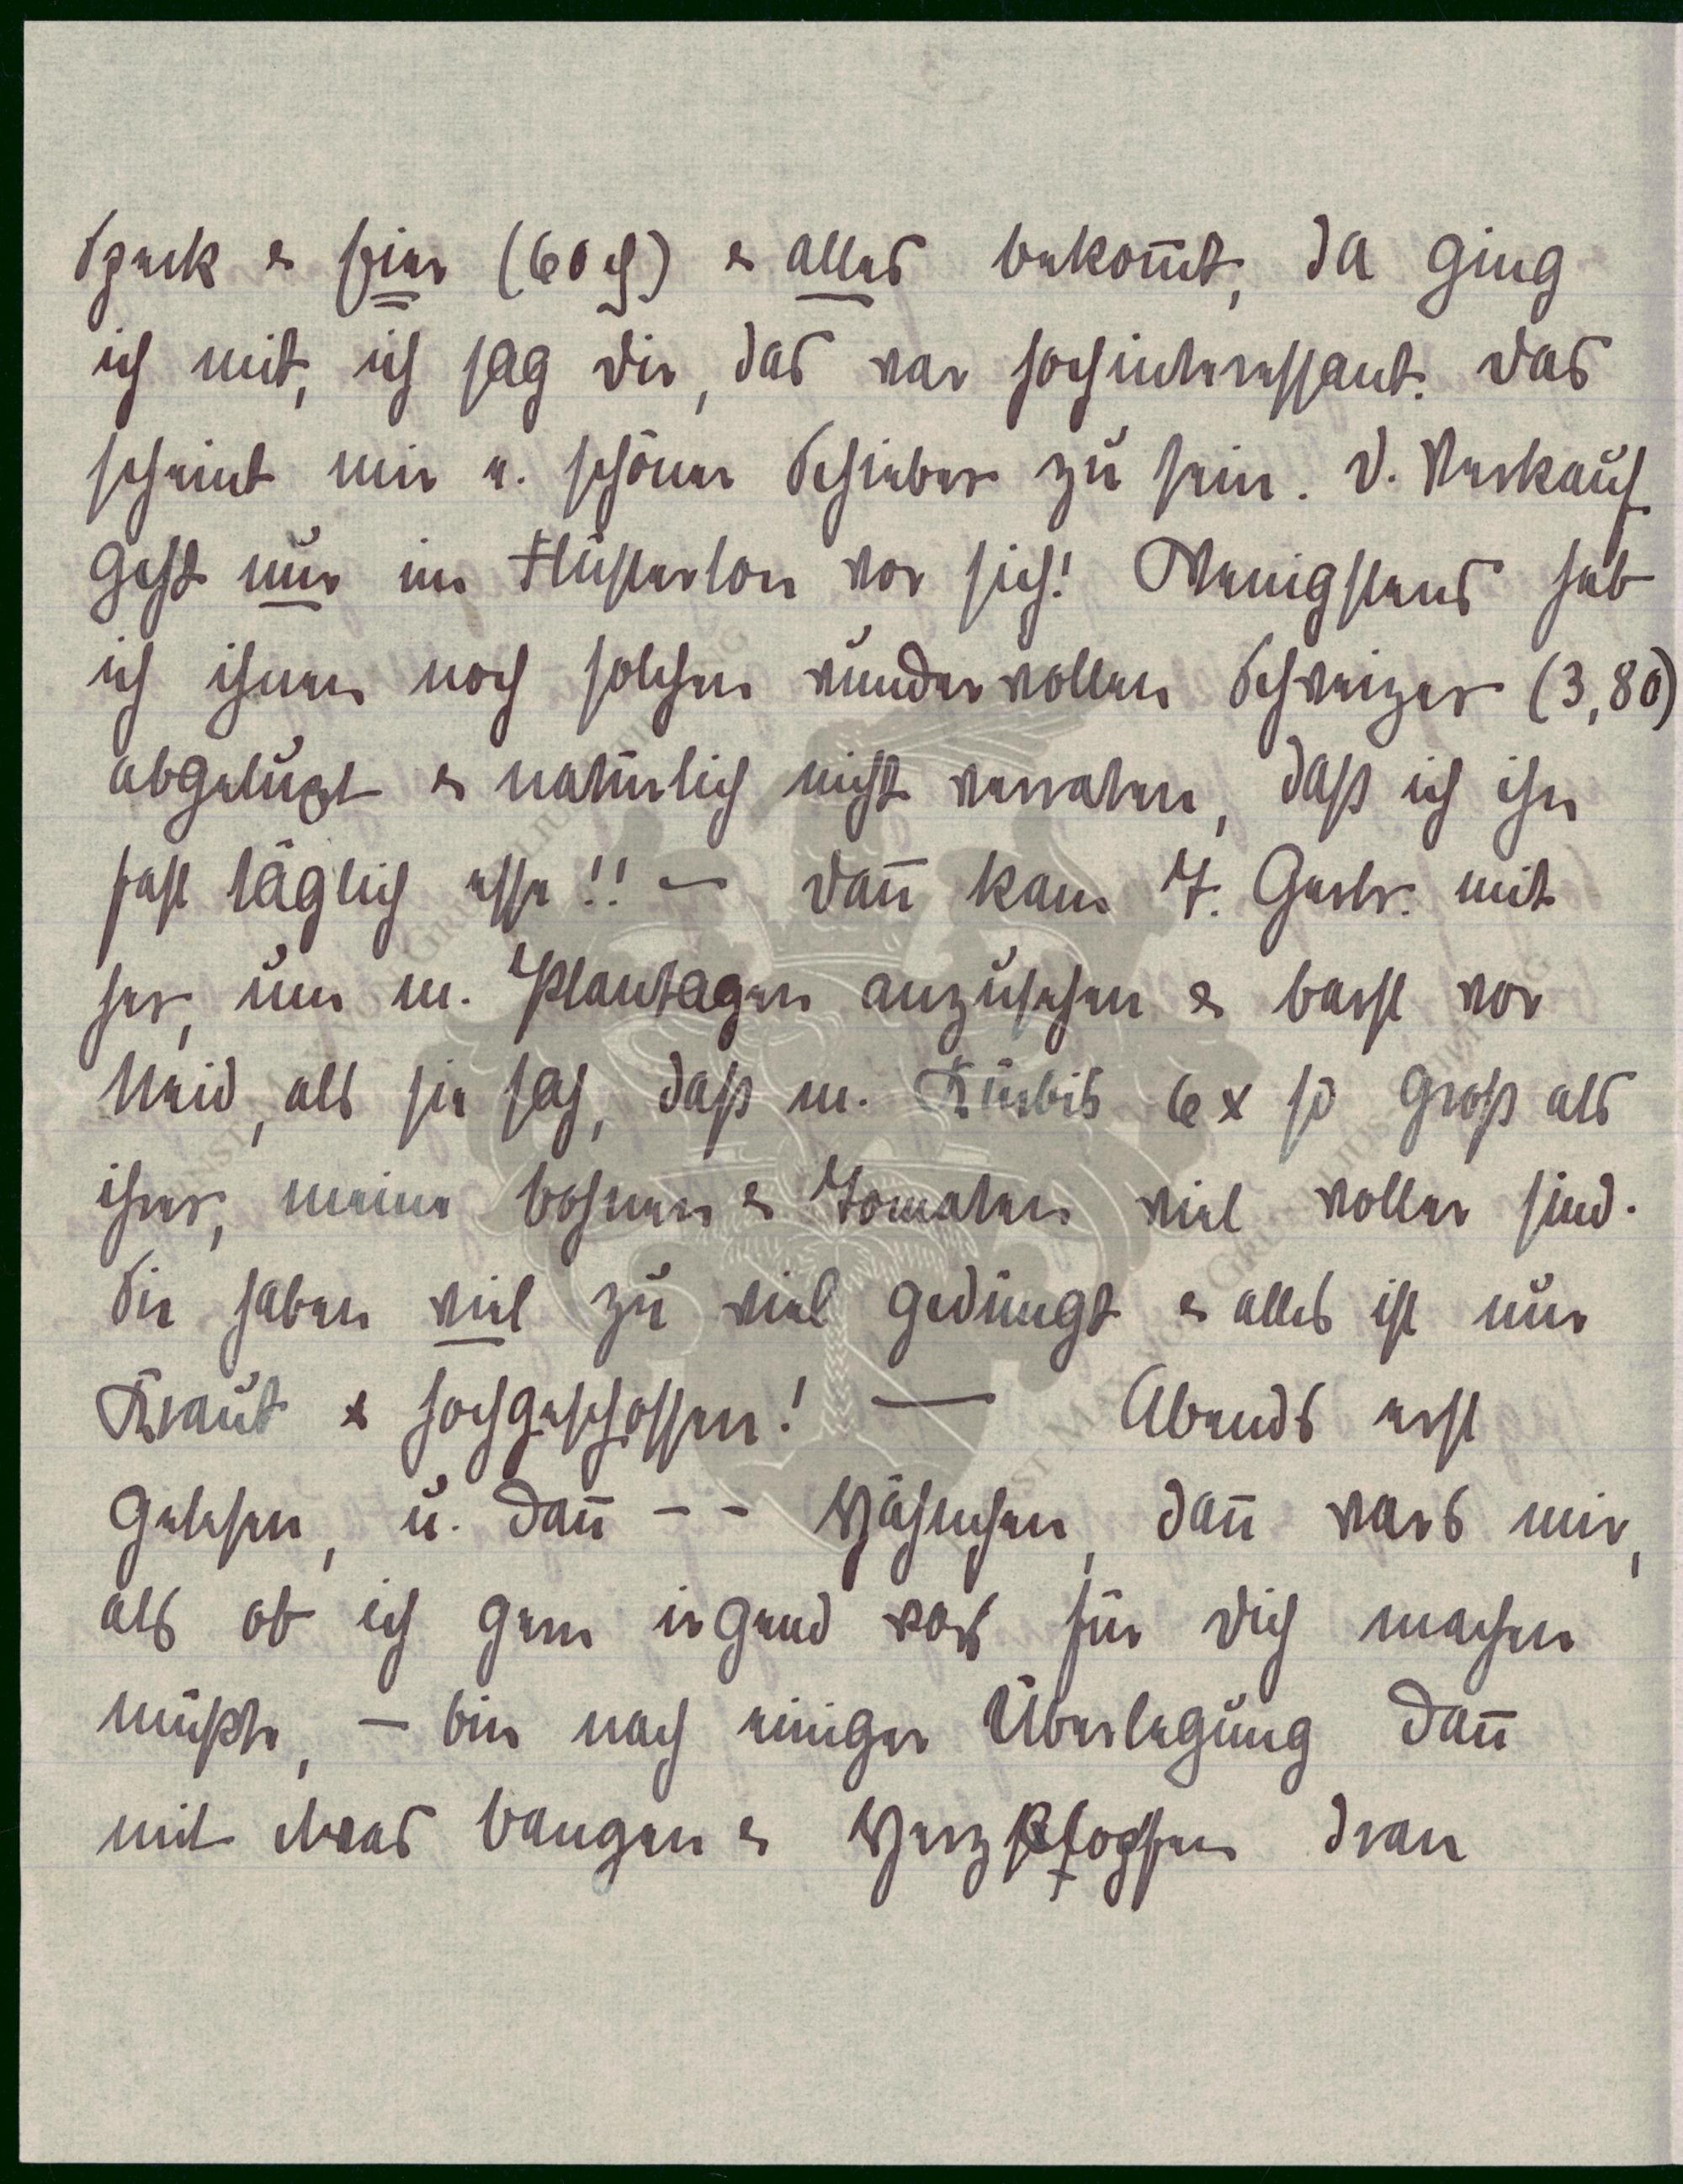 Speck & Eier (60 ₰) & alles bekom̅t, da ging
ich mit, ich sag Dir, das war hochinteressant. Das
scheint mir e. schöner Schieber zu sein. D. Verkauf
geht nur im Flüsterton vor sich! Wenigstens hab
ich ihnen noch solchen wundervollen Schweizer (3,80)
abgeluxt & natürlich nicht verraten, daß ich ihn
fast täglich esse!! — Dan̅ kam T. Gertr. mit
her, um m. Plantagen anzusehen & barst vor
Neid, als sie sah, daß m. Kürbis 6 x so groß als
ihrer, meine Bohnen & Tomaten viel voller sind.
Sie haben viel zu viel gedüngt & alles ist nur
Kraut & hochgeschossen! — Abends erst
gelesen, u. dan̅ - - Hähnchen, dan̅ wars mir,
als ob ich gern irgend was für Dich machen
müßte, — bin nach einiger Überlegung dan̅
mit etwas Bangen & Herzklopfen dran